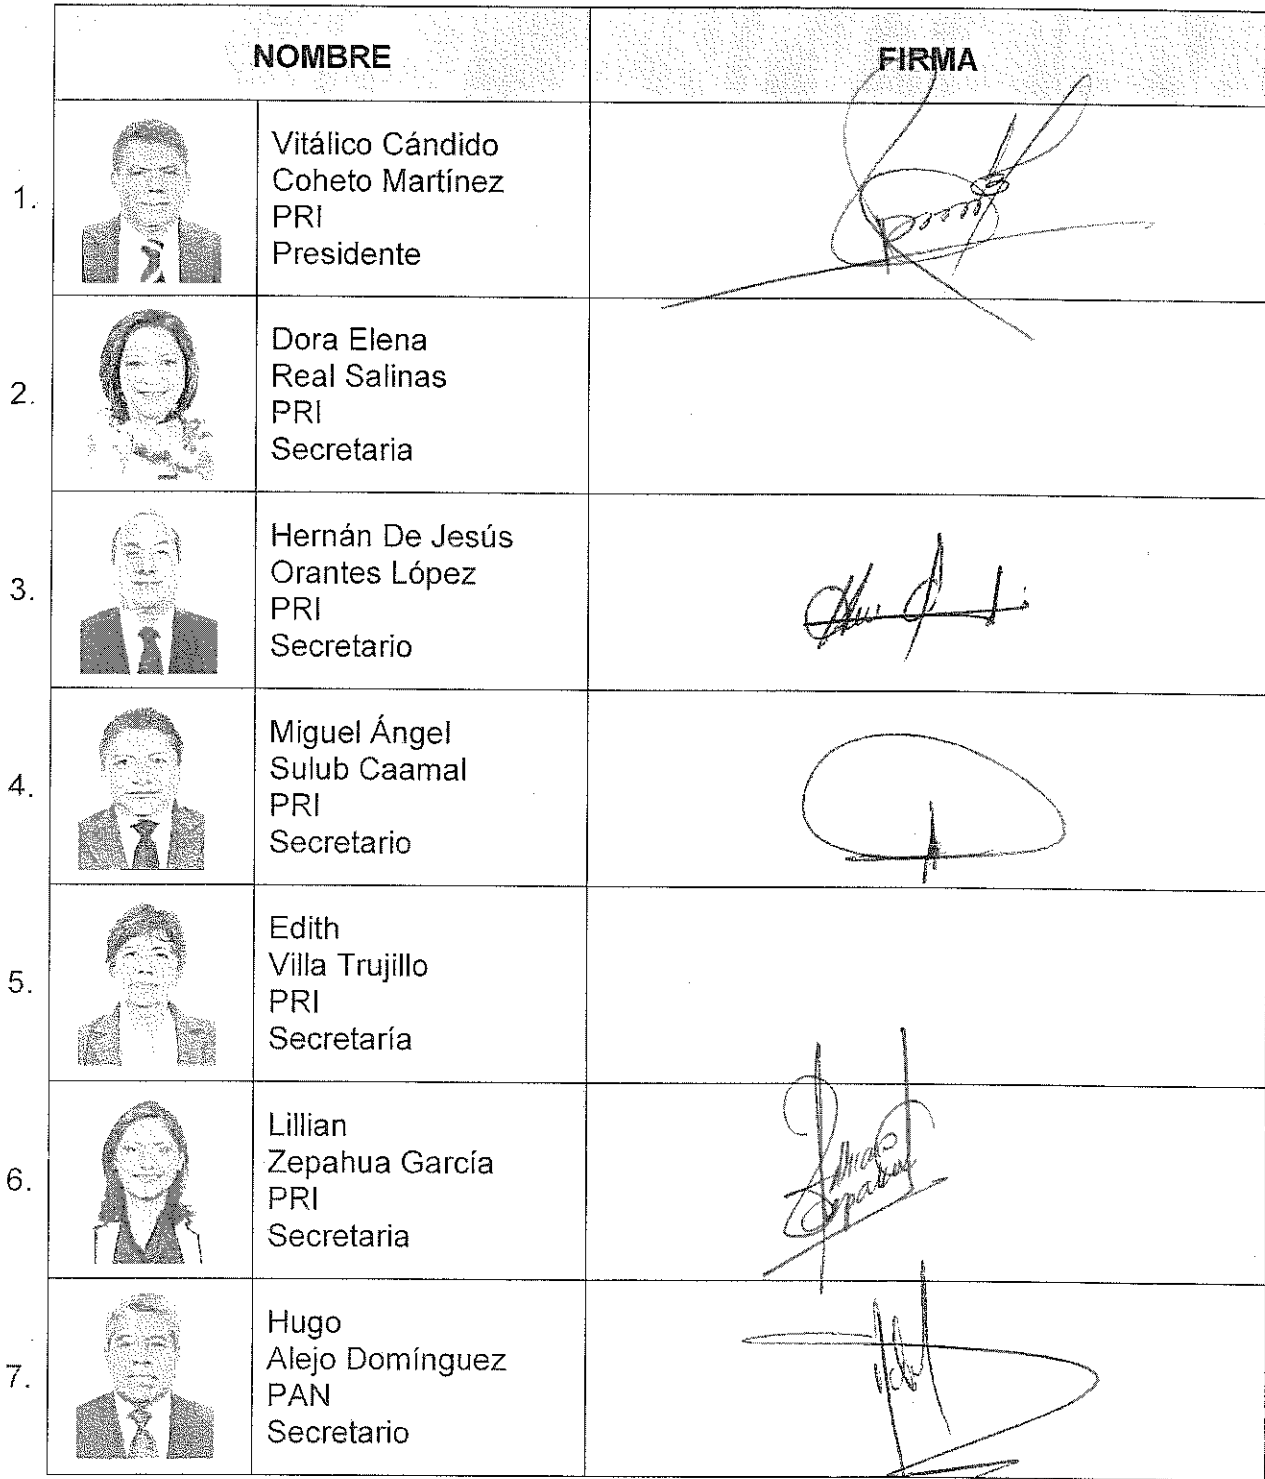 NOMBRE FIRMA
1.
Vitálico Cándido
Coheto Martínez
PRI
Presidente
2.
Dora Elena
Real Salinas
PRI
Secretaria
3.
Hernán De Jesús
Orantes López
PRI
Secretario
4.
Miguel Ángel
Sulub Caamal
PRI
Secretario
5.
Edith
Villa Trujillo
PRI
Secretaría
6.
Lillian
Zepahua García
PRI
Secretaria
7.
Hugo
Alejo Domínguez
PAN
Secretario